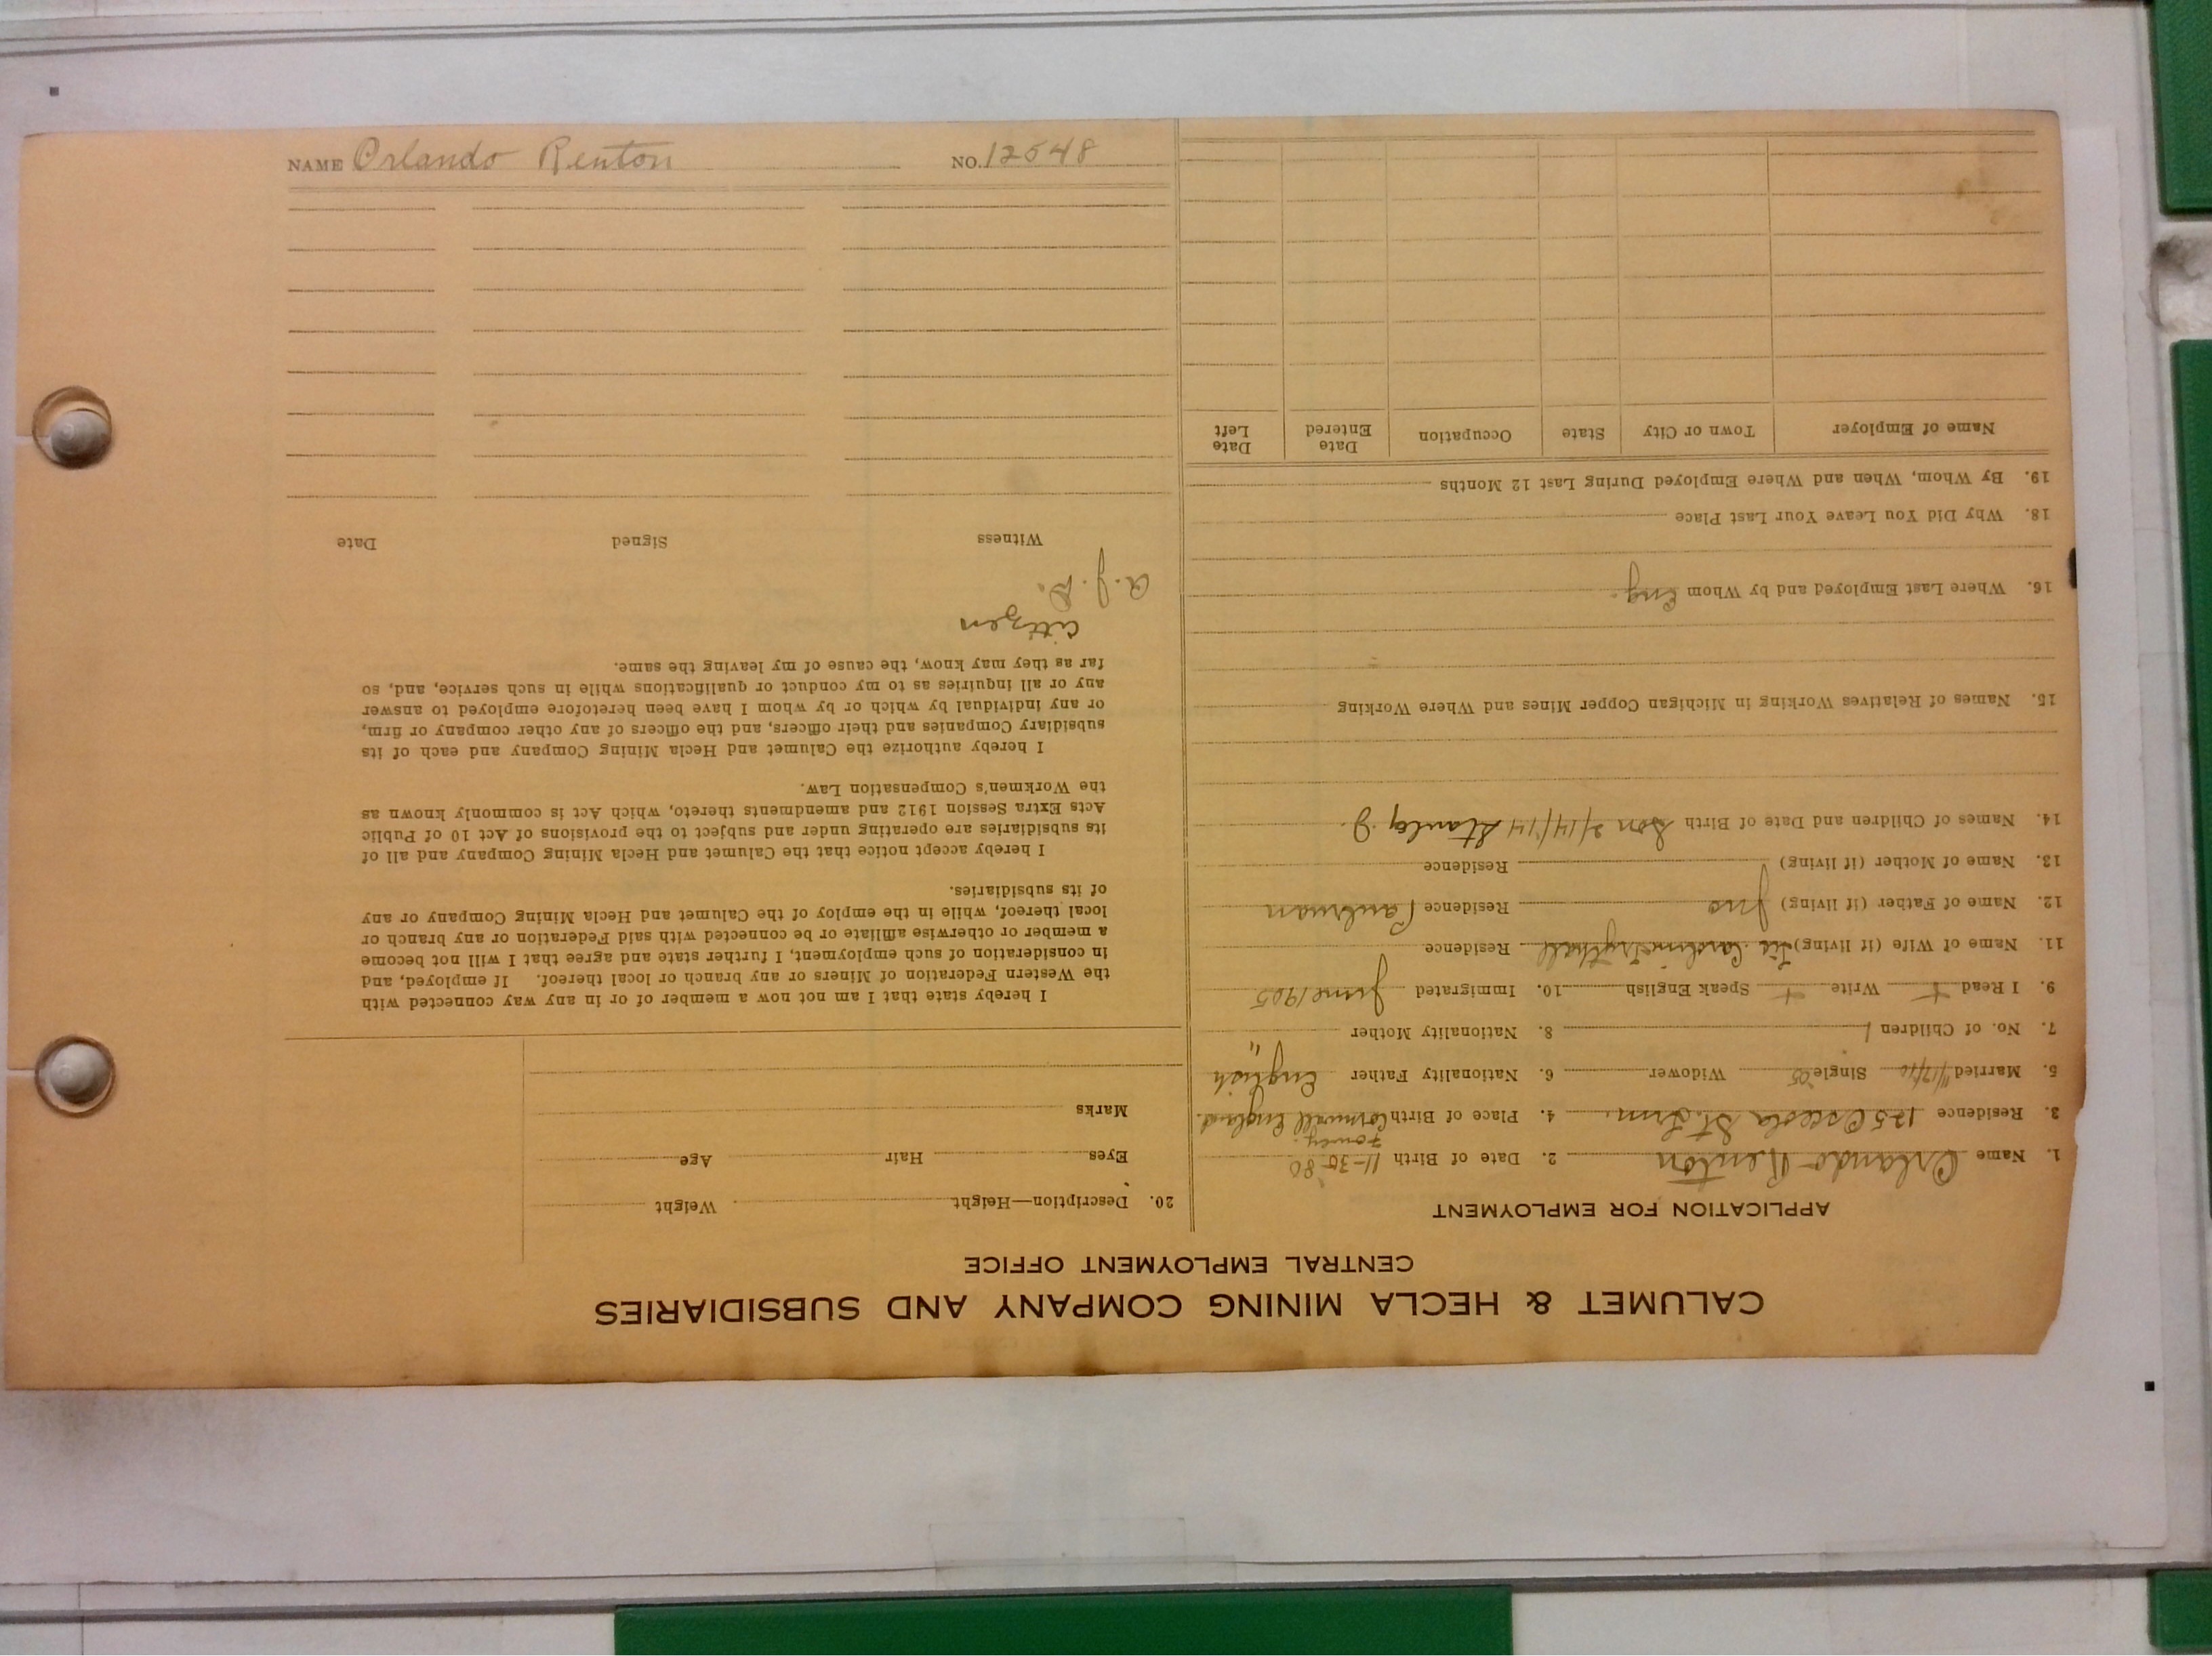 CALUMET & HECLA MINING COMPANY AND SUBSIDIARIES
CENTRAL EMPLOYMENT OFFICE
APPLICATION FOR EMPLOYMENT
1. Name Orlando Renton 2. Date of Birth 11-30-80
Fowey
3. Residence 125 Osceola St. Lrm. 4. Place of Birth Cornwall England.
5. Married 11/12/10 Single 05 Widower 6. Nationality Father English
7. No. of Children 1 8. Nationality Mother "
9. I Read + Write + Speak English 10. Immigrated June 1905
11. Name of Wife (if living) Residence
12. Name of Father (if living) Jno Residence
13. Name of Mother (if living) Residence
14. Names of Children and Date of Birth Son 2/14/'14 Stanley J.
15. Names of Relatives Working in Michigan Copper Mines and Where Working
16. Where Last Employed and by Whom Eng.
18. Why Did You Leave Your Last Place
19. By Whom, When and Where Employed During Last 12 Months
Name of Employer Town or City State Occupation Date Entered Date Left
20. Description—Height Weight
Eyes Hair Age
Marks
I hereby state that I am not now a member of or in any way connected with
the Western Federation of Miners or any branch or local thereof. If employed, and
in consideration of such employment, I further state and agree that I will not become
a member or otherwise affiliate or be connected with said Federation or any branch or
local thereof, while in the employ of the Calumet and Hecla Mining Company or any
of its subsidiaries.
I hereby accept notice that the Calumet and Hecla Mining Company and all of
its subsidiaries are operating under and subject to the provisions of Act 10 of Public
Acts Extra Session 1912 and amendments thereto, which Act is commonly known as
the Workmen's Compensation Law.
I hereby authorize the Calumet and Hecla Mining Company and each of its
subsidiary Companies and their officers, and the officers of any other company or firm,
or any individual by which or by whom I have been heretofore employed to answer
any or all inquiries as to my conduct or qualifications while in such service, and, so
far as they may know, the cause of my leaving the same.
citizen
a. J. D.
Witness Signed Date
NAME Orlando Renton NO. 12548